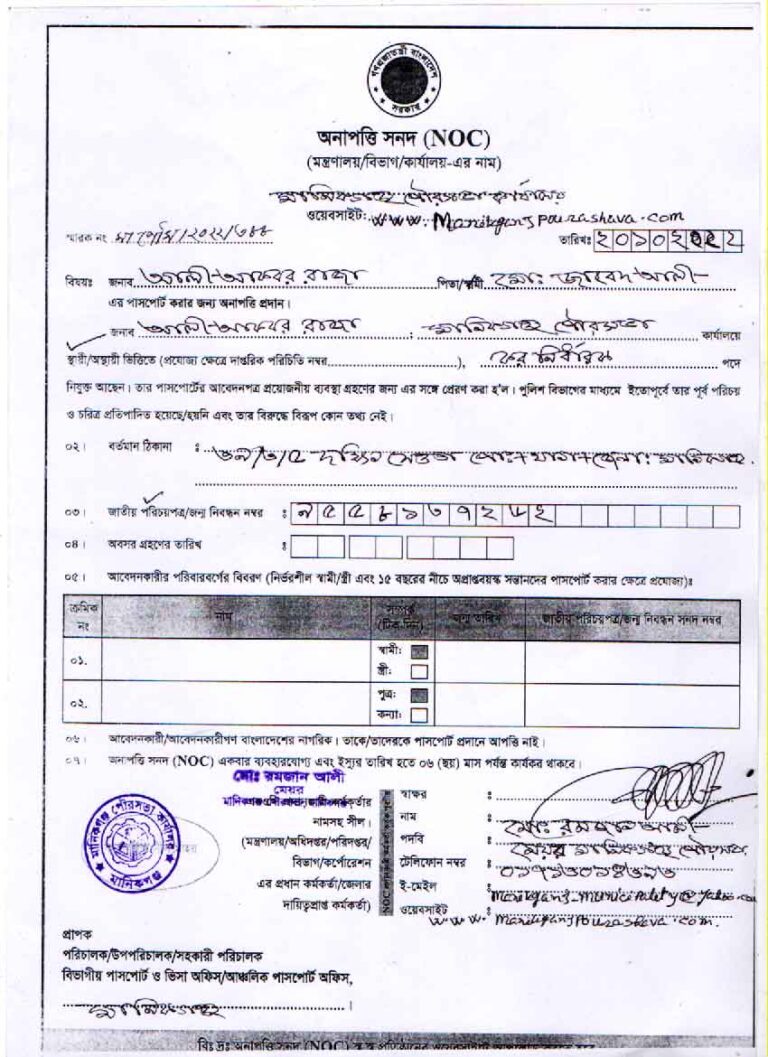 গণপ্রজাতন্ত্রী বাংলাদেশ
সরকার
অনাপত্তি সনদ (NOC)
(মন্ত্রণালয়/বিভাগ/কার্যালয়-এর নাম)
মানিকগঞ্জ পৌরসভা কার্যালয়
ওয়েবসাইট: www.Manikganjpourashava.com
স্মারক নং মা/পৌ/স/২০২২/৩৪৪ তারিখঃ
বিষয়ঃ জনাব আলী-আকবর রাজা পিতা/স্বামী মোঃ জাবেদ আলী
এর পাসপোর্ট করার জন্য অনাপত্তি প্রদান।
জনাব আলী-আকবর রাজা, মানিকগঞ্জ পৌরসভা কার্যালয়ে
স্থায়ী/অস্থায়ী ভিত্তিতে (প্রযোজ্য ক্ষেত্রে দাপ্তরিক পরিচিতি নম্বর ), কর নির্ধারক পদে
নিযুক্ত আছেন। তার পাসপোর্টের আবেদনপত্র প্রয়োজনীয় ব্যবস্থা গ্রহণের জন্য এর সঙ্গে প্রেরণ করা হ'ল। পুলিশ বিভাগের মাধ্যমে ইতোপূর্বে তার পূর্ব পরিচয়
ও চরিত্র প্রতিপাদিত হয়েছে/হয়নি এবং তার বিরুদ্ধে বিরূপ কোন তথ্য নেই।
০২। বর্তমান ঠিকানা : দক্ষিণ সেওতা পোঃ+থানা+জেলা: মানিকগঞ্জ.
০৩। জাতীয় পরিচয়পত্র/জন্ম নিবন্ধন নম্বর : ৯৫৫৪১৩৭২৪২
০৪। অবসর গ্রহণের তারিখ :
০৫। আবেদনকারীর পরিবারবর্গের বিবরণ (নির্ভরশীল স্বামী/স্ত্রী এবং ১৫ বছরের নীচে অপ্রাপ্তবয়স্ক সন্তানদের পাসপোর্ট করার ক্ষেত্রে প্রযোজ্য)ঃ
ক্রমিক নং নাম সম্পর্ক (টিক দিন) জন্ম তারিখ জাতীয় পরিচয়পত্র/জন্ম নিবন্ধন সনদ নম্বর
০১. স্বামী:
স্ত্রী:
০২. পুত্র:
কন্যা:
০৬। আবেদনকারী/আবেদনকারীগণ বাংলাদেশের নাগরিক। তাকে/তাদেরকে পাসপোর্ট প্রদানে আপত্তি নাই।
০৭। অনাপত্তি সনদ (NOC) একবার ব্যবহারযোগ্য এবং ইস্যুর তারিখ হতে ০৬ (ছয়) মাস পর্যন্ত কার্যকর থাকবে।
মোঃ রমজান আলী
মেয়র
নামসহ সীল।
(মন্ত্রণালয়/অধিদপ্তর/পরিদপ্তর/
বিভাগ/কর্পোরেশন
এর প্রধান কর্মকর্তা/জেলার
দায়িত্বপ্রাপ্ত কর্মকর্তা)
মানিকগঞ্জ পৌরসভা কার্যালয়
মানিকগঞ্জ
স্বাক্ষর :
নাম : মোঃ রমজান আলী
পদবি : মেয়র মানিকগঞ্জ পৌরসভা.
টেলিফোন নম্বর :
ই-মেইল : manikganj_municipality@yahoo.com
ওয়েবসাইট : www.manikganjpourashava.com.
প্রাপক
পরিচালক/উপপরিচালক/সহকারী পরিচালক
বিভাগীয় পাসপোর্ট ও ভিসা অফিস/আঞ্চলিক পাসপোর্ট অফিস,
মানিকগঞ্জ।
বিঃ দ্রঃ অনাপত্তি সনদ (NOC)